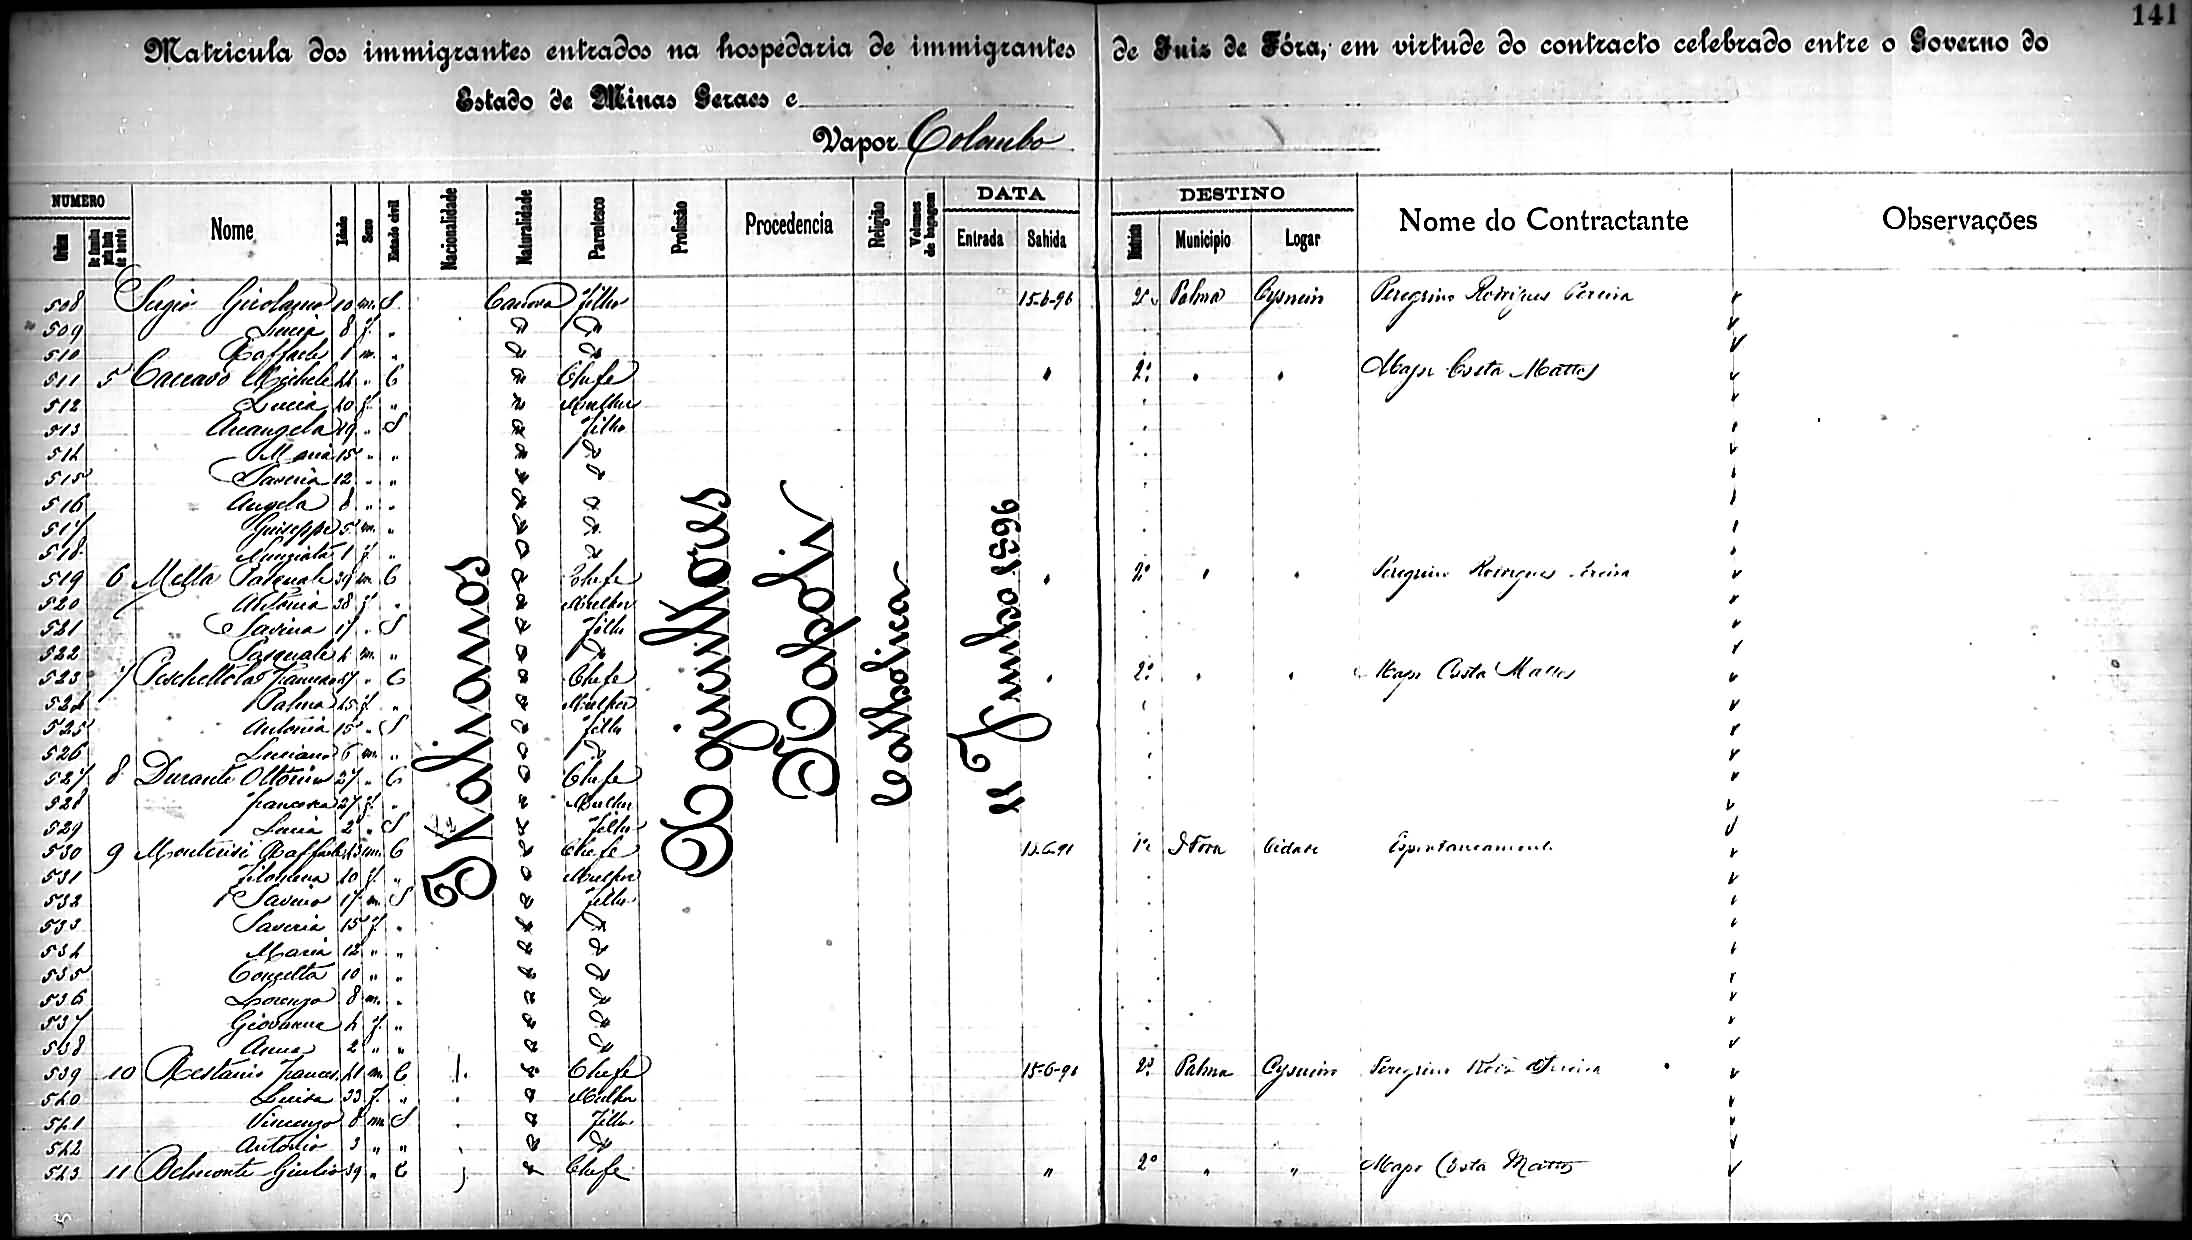 141
Matricula dos immigrantes entrados na hospedaria de immigrantes de Juiz de Fóra, em virtude do contracto celebrado entre o Governo do
Estado de Minas Geraes e
Vapor Colombo
NUMERO Nome Idade Sexo Estado civil Nacionalidade Naturalidade Parentesco Profissão Procedencia Religião Volumes de bagagem DATA DESTINO Nome do Contractante Observações
Ordem Entrada Sahida Districto Municipio Logar
Italianos
Agricultores
Napoli
Catholica
11 Junho 1896
508 Girolamo 10 m. S Canosa filho 15-6-96 2º Palma Cysneiro Peregrino Rodrigues Pereira
509 Lucia 8 f. "
510 Raffaele 1 m. "
511 5 Michele 44 " C Chefe " 2º " " Major Costa Mattos
512 Lucia 40 f. " Mulher
513 Arcangela 19 " S filho
514 Maria 15 " "
515 Saveria 12 " "
516 Angela 8 " "
517 Giuseppe 5 m. "
518 Nunziata 1 f. "
519 6 Melta Pasquale 39 m. C Chefe " 2º " " Peregrino Rodrigues Pereira
520 Antonia 38 f. " Mulher
521 Savina 17 " S filho
522 Pasquale 4 m. "
523 7 " C Chefe " 2º " " Major Costa Mattos
524 Palma 45 f. " Mulher
525 Antonia 15 " S filho
526 Luciano 6 m. "
527 8 Durante 27 " C Chefe
528 Francesca 27 f. " Mulher
529 Lucia 2 " S filho
530 9 Raffaele 43 m. C Chefe 1º J. Fora Cidade Espontaneamente
531 Filomena 40 f. " Mulher
532 Saverio 17 m. S filho
533 Saveria 15 f. "
534 Maria 12 " "
535 Concetta 10 " "
536 Lorenzo 8 m. "
537 Giovanna 4 f. "
538 Anna 2 " "
539 10 Frances. 41 m. C Chefe 15-6-96 2º Palma Cysneiro Peregrino
540 Luisa 33 f. " Mulher
541 Vincenzo 8 m. S filho
542 Antonio 3 " "
543 11 Belmonte Giulio 39 " C Chefe " 2º " " Major Costa Mattos